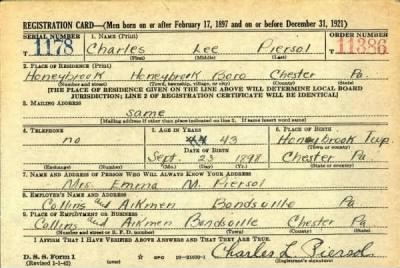 REGISTRATION CARD—(Men born on or after February 17, 1897 and on or before December 31, 1921)
SERIAL NUMBER 1. NAME (Print) ORDER NUMBER
T 1178 Charles Lee Piersol T 11386
(First) (Middle) (Last)
2. PLACE OF RESIDENCE (Print)
Honeybrook Honeybrook Boro Chester Pa.
(Number and street) (Town, township, village, or city) (County) (State)
[THE PLACE OF RESIDENCE GIVEN ON THE LINE ABOVE WILL DETERMINE LOCAL BOARD
JURISDICTION; LINE 2 OF REGISTRATION CERTIFICATE WILL BE IDENTICAL]
3. MAILING ADDRESS
Same
[Mailing address if other than place indicated on line 2. If same insert word same]
4. TELEPHONE 5. AGE IN YEARS 6. PLACE OF BIRTH
no 43 Honeybrook Twp
DATE OF BIRTH (Town or county)
Sept. 23 1898 Chester Pa
(Exchange) (Number) (Mo.) (Day) (Yr.) (State or country)
7. NAME AND ADDRESS OF PERSON WHO WILL ALWAYS KNOW YOUR ADDRESS
Mrs. Emma M. Piersol
8. EMPLOYER'S NAME AND ADDRESS
Collins and Aikmen Bondsville Pa
9. PLACE OF EMPLOYMENT OR BUSINESS
Collins and Aikmen Bondsville Chester Pa
(Number and street or R. F. D. number) (Town) (County) (State)
I AFFIRM THAT I HAVE VERIFIED ABOVE ANSWERS AND THAT THEY ARE TRUE.
D. S. S. Form 1 GPO Charles L Piersol
(Revised 1-1-42) (over) (Registrant's signature)